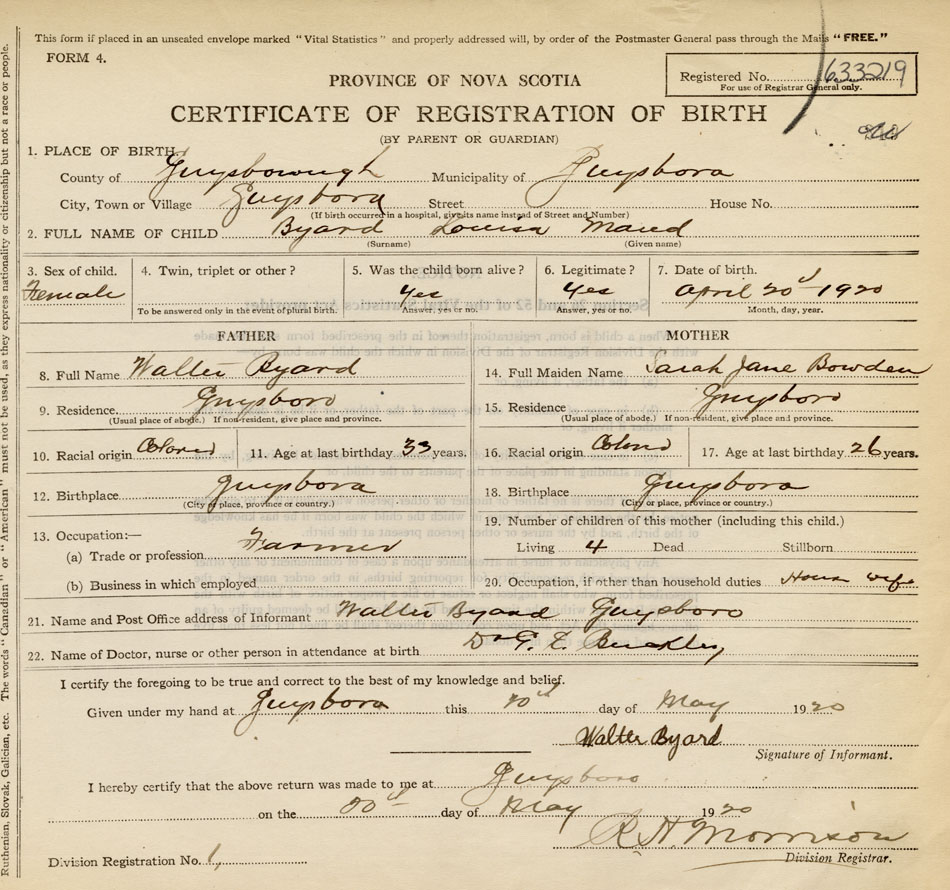 This form if placed in an unsealed envelope marked "Vital Statistics" and properly addressed will, by order of the Postmaster General pass through the Mails "FREE."
FORM 4.
Registered No. 633219
For use of Registrar General only.
PROVINCE OF NOVA SCOTIA
CERTIFICATE OF REGISTRATION OF BIRTH
(BY PARENT OR GUARDIAN)
1. PLACE OF BIRTH
County of Guysborough Municipality of Guysboro
City, Town or Village Guysboro Street House No.
(If birth occurred in a hospital, give its name instead of Street and Number)
2. FULL NAME OF CHILD Byard Louisa Maud
(Surname) (Given name)
3. Sex of child. 4. Twin, triplet or other? 5. Was the child born alive? 6. Legitimate? 7. Date of birth.
Female Yes Yes April 20d 1920
To be answered only in the event of plural birth. Answer, yes or no. Answer, yes or no. Month, day, year.
FATHER
8. Full Name Walter Byard
9. Residence Guysboro
(Usual place of abode.) If non-resident, give place and province.
10. Racial origin Colored 11. Age at last birthday 33 years.
12. Birthplace Guysboro
(City or place, province or country.)
13. Occupation:—
(a) Trade or profession Farmer
(b) Business in which employed
MOTHER
14. Full Maiden Name Sarah Jane Bowden
15. Residence Guysboro
(Usual place of abode.) If non-resident, give place and province.
16. Racial origin Colored 17. Age at last birthday 26 years.
18. Birthplace Guysboro
(City or place, province or country.)
19. Number of children of this mother (including this child.)
Living 4 Dead Stillborn
20. Occupation, if other than household duties House wife
21. Name and Post Office address of Informant Walter Byard Guysboro
22. Name of Doctor, nurse or other person in attendance at birth Dr G. E. Buckley
I certify the foregoing to be true and correct to the best of my knowledge and belief.
Given under my hand at Guysboro this day of May 1920
Walter Byard
Signature of Informant.
I hereby certify that the above return was made to me at Guysboro
on the day of May 1920
R H Morrison
Division Registrar.
Division Registration No. 1,
Ruthenian, Slovak, Galician, etc. The words "Canadian" or "American" must not be used, as they express nationality or citizenship but not a race or people.